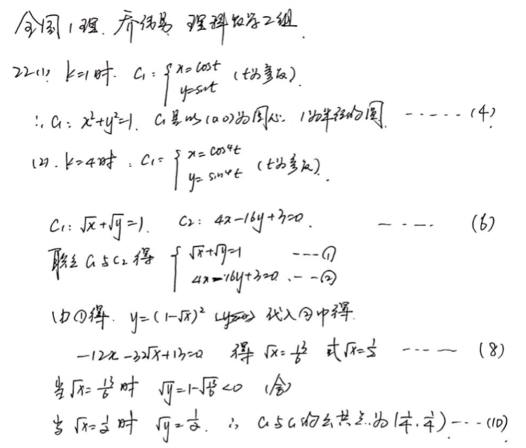 全国1理. 乔伟男 理科数学2组
22(1). k=1时. C₁: { x=cost y=sint (t为参数).
∴ C₁: x²+y²=1. C₁是以(0,0)为圆心. 1为半径的圆. ······ (4)
(2). k=4时. C₁: { x=cos⁴t y=sin⁴t (t为参数).
C₁: √x+√y=1. C₂: 4x-16y+3=0. ---- (6)
联立C₁与C₂得 { √x+√y=1 ---① 4x-16y+3=0 ---②
由①得. y=(1-√x)² 代入②中得.
-12x-32√x+13=0 得 √x=13/6 或√x=1/2 ---- (8)
当√x=13/6时 √y=1-√13/6<0 (舍)
当√x=1/2时 √y=1/2. ∴ C₁与C₁的公共点为(1/4, 1/4)---(10)